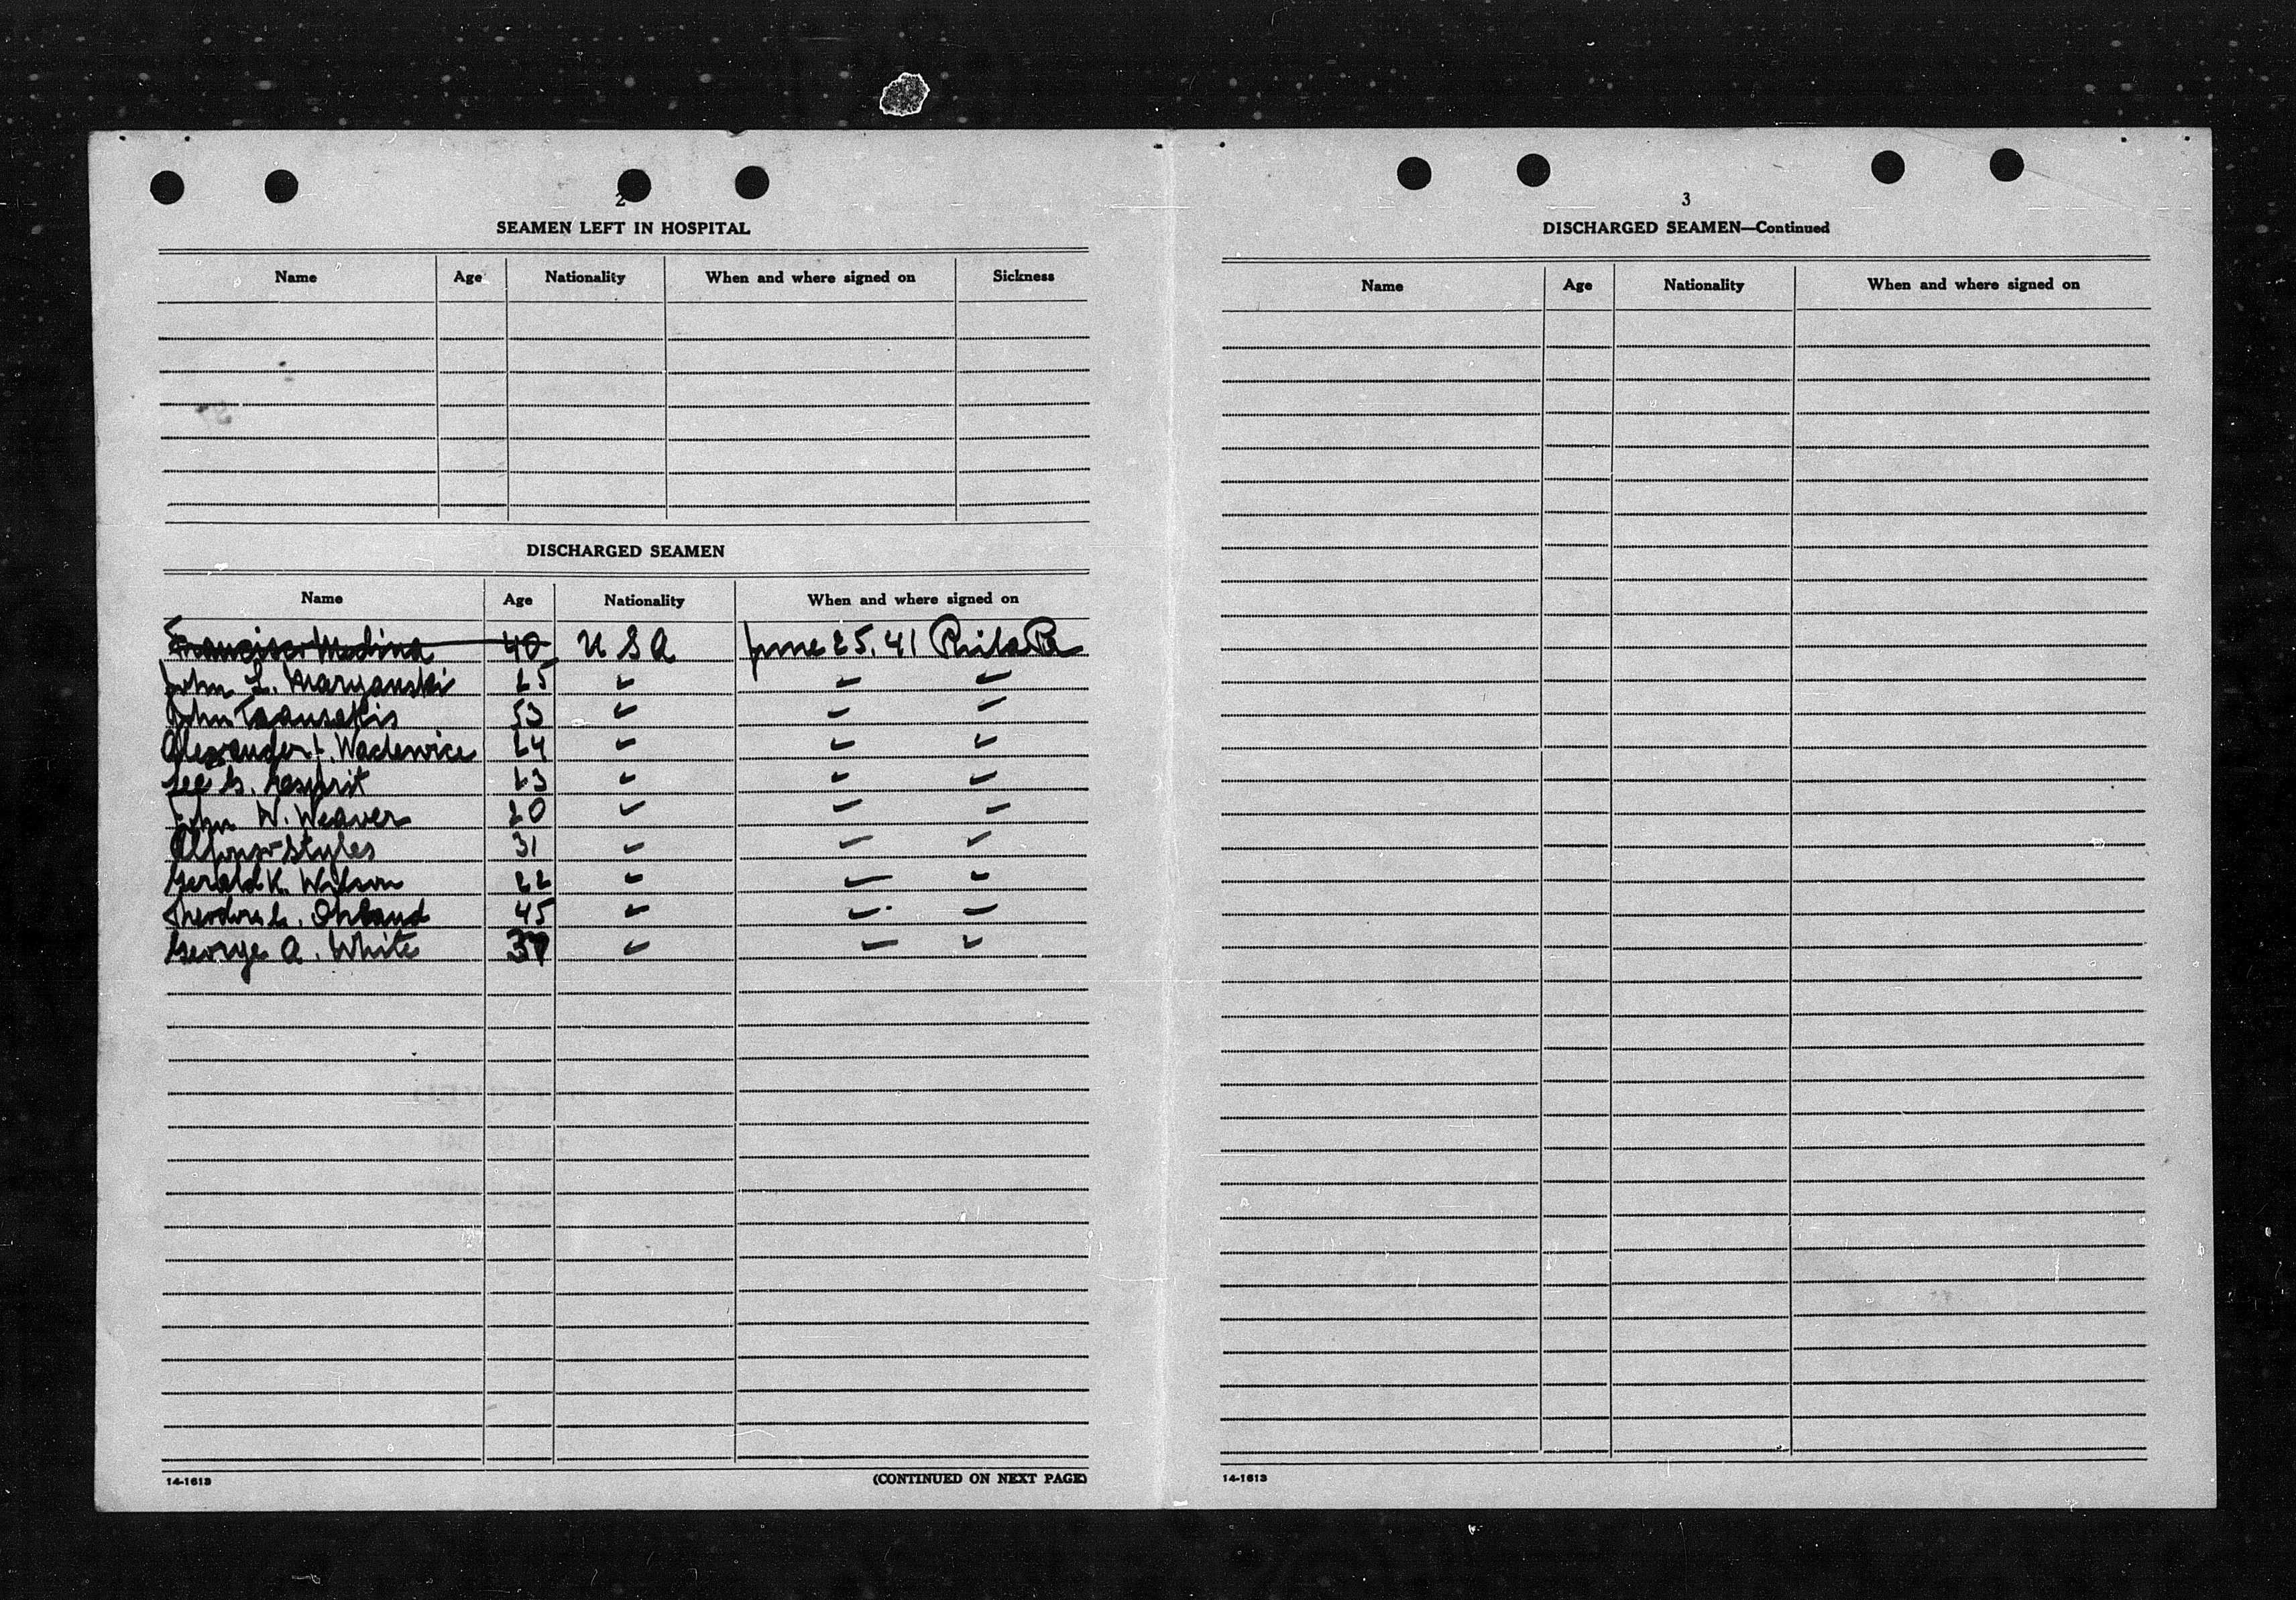 2
SEAMEN LEFT IN HOSPITAL
Name Age Nationality When and where signed on Sickness
DISCHARGED SEAMEN
Name Age Nationality When and where signed on
Francisco Medina 40 U S A June 25, 41 Phila Pa
John L. Maryanski 25 " " "
John 53 " " "
Alexander J. 24 " " "
Lee G. 23 " " "
John W. Weaver 20 " " "
Alfonso Styles 31 " " "
Gerald K. Wilson 22 " " "
Theodore 45 " " "
George A. White 37 " " "
14-1613 (CONTINUED ON NEXT PAGE)
3
DISCHARGED SEAMEN—Continued
Name Age Nationality When and where signed on
14-1613